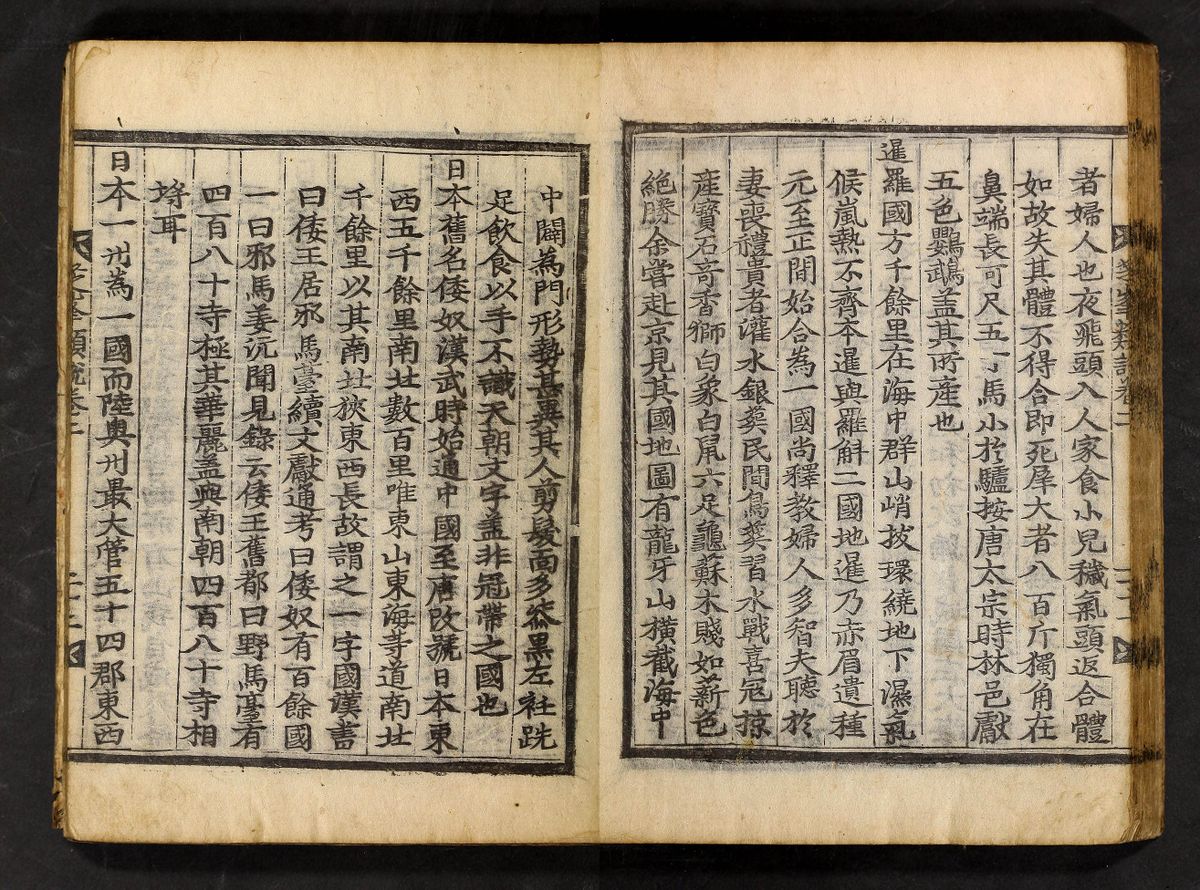 者婦人也夜飛頭入人家食小兒穢氣頭返合體
如故失其體不得合即死犀大者八百斤獨角在
鼻端長可尺五寸馬小於驢按唐太宗時林邑獻
五色鸚鵡盖其所産也
暹羅國方千餘里在海中群山峭拔環繞地下濕氣
候嵐熱不齊本暹與羅斛二國地暹乃赤眉遺種
元至正間始合為一國尚釋教婦人多智夫聽於
妻喪禮貴者灌水銀葬民間鳥葬習水戰喜寇掠
産寶石奇香獅白象白鼠六足龜蘇木賤如薪色
絶勝余嘗赴京見其國地圖有龍牙山橫截海中
中闢為門形勢甚異其人剪髮面多黲黑左衽跣
足飲食以手不識天朝文字盖非冠帶之國也
日本舊名倭奴漢武時始通中國至唐改號日本東
西五千餘里南北數百里唯東山東海等道南北
千餘里以其南北狹東西長故謂之一字國漢書
曰倭王居邪馬臺續文獻通考曰倭奴有百餘國
一曰邪馬姜沆聞見錄云倭王舊都曰野馬臺有
四百八十寺極其華麗盖與南朝四百八十寺相
埒耳
日本一州為一國而陸奧州最大管五十四郡東西
芝峯類說卷二
二十二